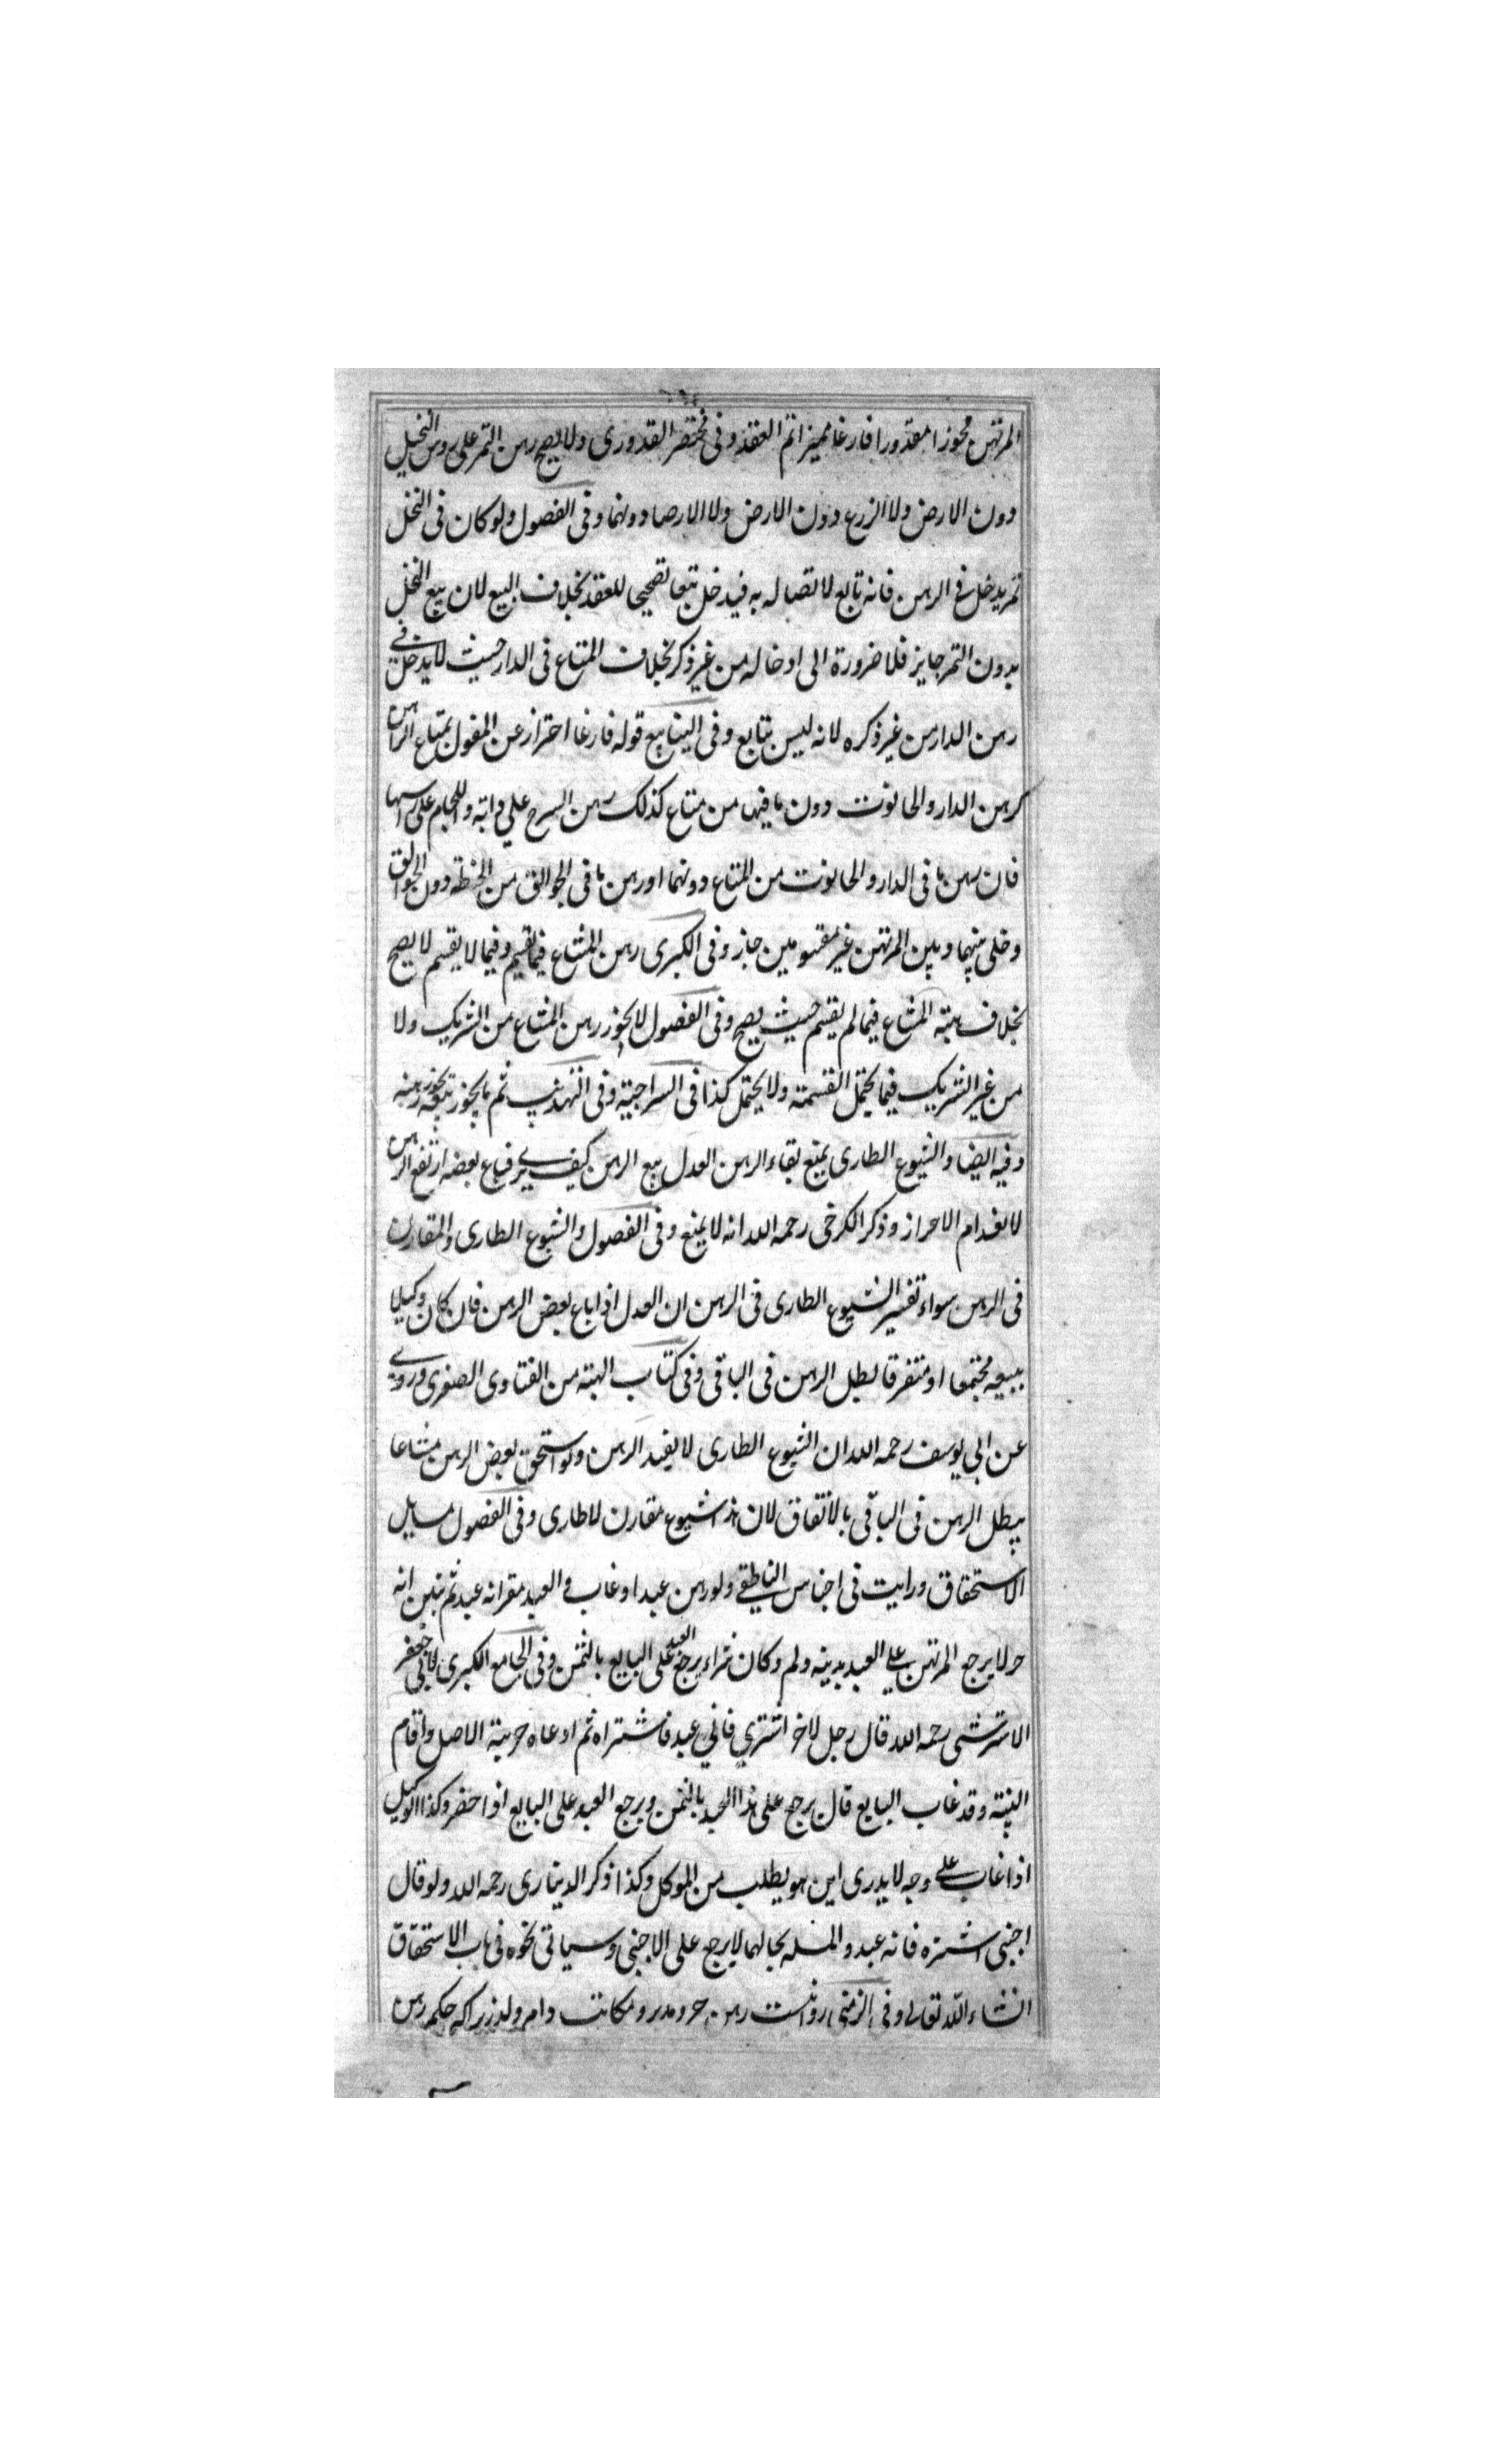 المرتهن محوزا مقدورا فارغا مميزا تم العقد وفى مختصر القدورى ولا يصح رهن التمر على روس النخيل
دون الارض ولا الزرع دون الارض ولا الارض دونهما وفى الفصول ولو كان فى النخل
تمر يدخل فى الرهن فانه تابع لاتصاله به فيدخل تبعا تصحيحا للعقد بخلاف البيع لان بيع النخل
بدون التمر جايز فلا ضرورة الى ادخاله من غير ذكر بخلاف المتاع فى الدار حيث لا يدخل فى
رهن الدار من غير ذكره لانه ليس بتابع وفى الينابيع قوله فارغا احتراز عن المشغول بمتاع الراهن
كرهن الدار والحانوت دون ما فيها من متاع كذلك رهن السرج على دابة واللجام على راسها
فان رهن ما فى الدار والحانوت من المتاع دونهما او رهن ما فى الجوالق من الحنطة دون الجوالق
وخلى بينهما وبين المرتهن غير مقسومين جاز وفى الكبرى رهن المشاع فيما يقسم وفيما لا يقسم لا يصح
بخلاف هبة المشاع فيما لم يقسم حيث يصح وفى الفصول لا يجوز رهن المشاع من الشريك ولا
من غير الشريك فيما يحتمل القسمة ولا يحتمل كذا فى السراجية وفى التهذيب ثم ما يجوز بيعه يجوز رهنه
وفيه ايضا والشيوع الطارى يمنع بقاء الرهن العدل بيع الرهن كيف يرى فباع بعضه ارتفع الرهن
لانعدام الاحراز وذكر الكرخى رحمه الله انه لا يمنع وفى الفصول والشيوع الطارى والمقارن
فى الرهن سواء تفسير الشيوع الطارى فى الرهن ان العدل اذا باع بعض الرهن فان كان وكيلا
ببيعه مجتمعا او متفرقا بطل الرهن فى الباقى وفى كتاب الهبة من الفتاوى الصغرى وروى
عن ابى يوسف رحمه الله ان الشيوع الطارى لا يفسد الرهن ولو استحق بعض الرهن مشاعا
يبطل الرهن فى الباقى بالاتفاق لان هذا شيوع مقارن لا طارى وفى الفصول مسايل
الاستحقاق ورايت فى اجناس الناطفى ولو رهن عبدا وغاب والعبد مقر انه عبد ثم تبين انه
حر لا يرجع المرتهن على العبد بدينه ولم وكان شراء يرجع العبد على البايع بالثمن وفى الجامع الكبرى لابى جعفر
الاستروشنى رحمه الله قال رجل لاخر اشترى فانى عبد فاشتراه ثم ادعاه حرية الاصل واقام
البينة وقد غاب البايع قال يرجع على هذا العبد بالثمن ويرجع العبد على البايع اذا حضر وكذا الوكيل
اذا غاب على وجه لا يدرى اين هو يطلب من الموكل وكذا ذكر الدينارى رحمه الله ولو قال
اجنبى اشتره فانه عبد والمسلة بحالها لا يرجع على الاجنبى وسياتى نحوه فى باب الاستحقاق
انشاء الله تعالى وفى رواست رهن حر ومدبر ومكاتب وام ولد زيراكه حكم رهن